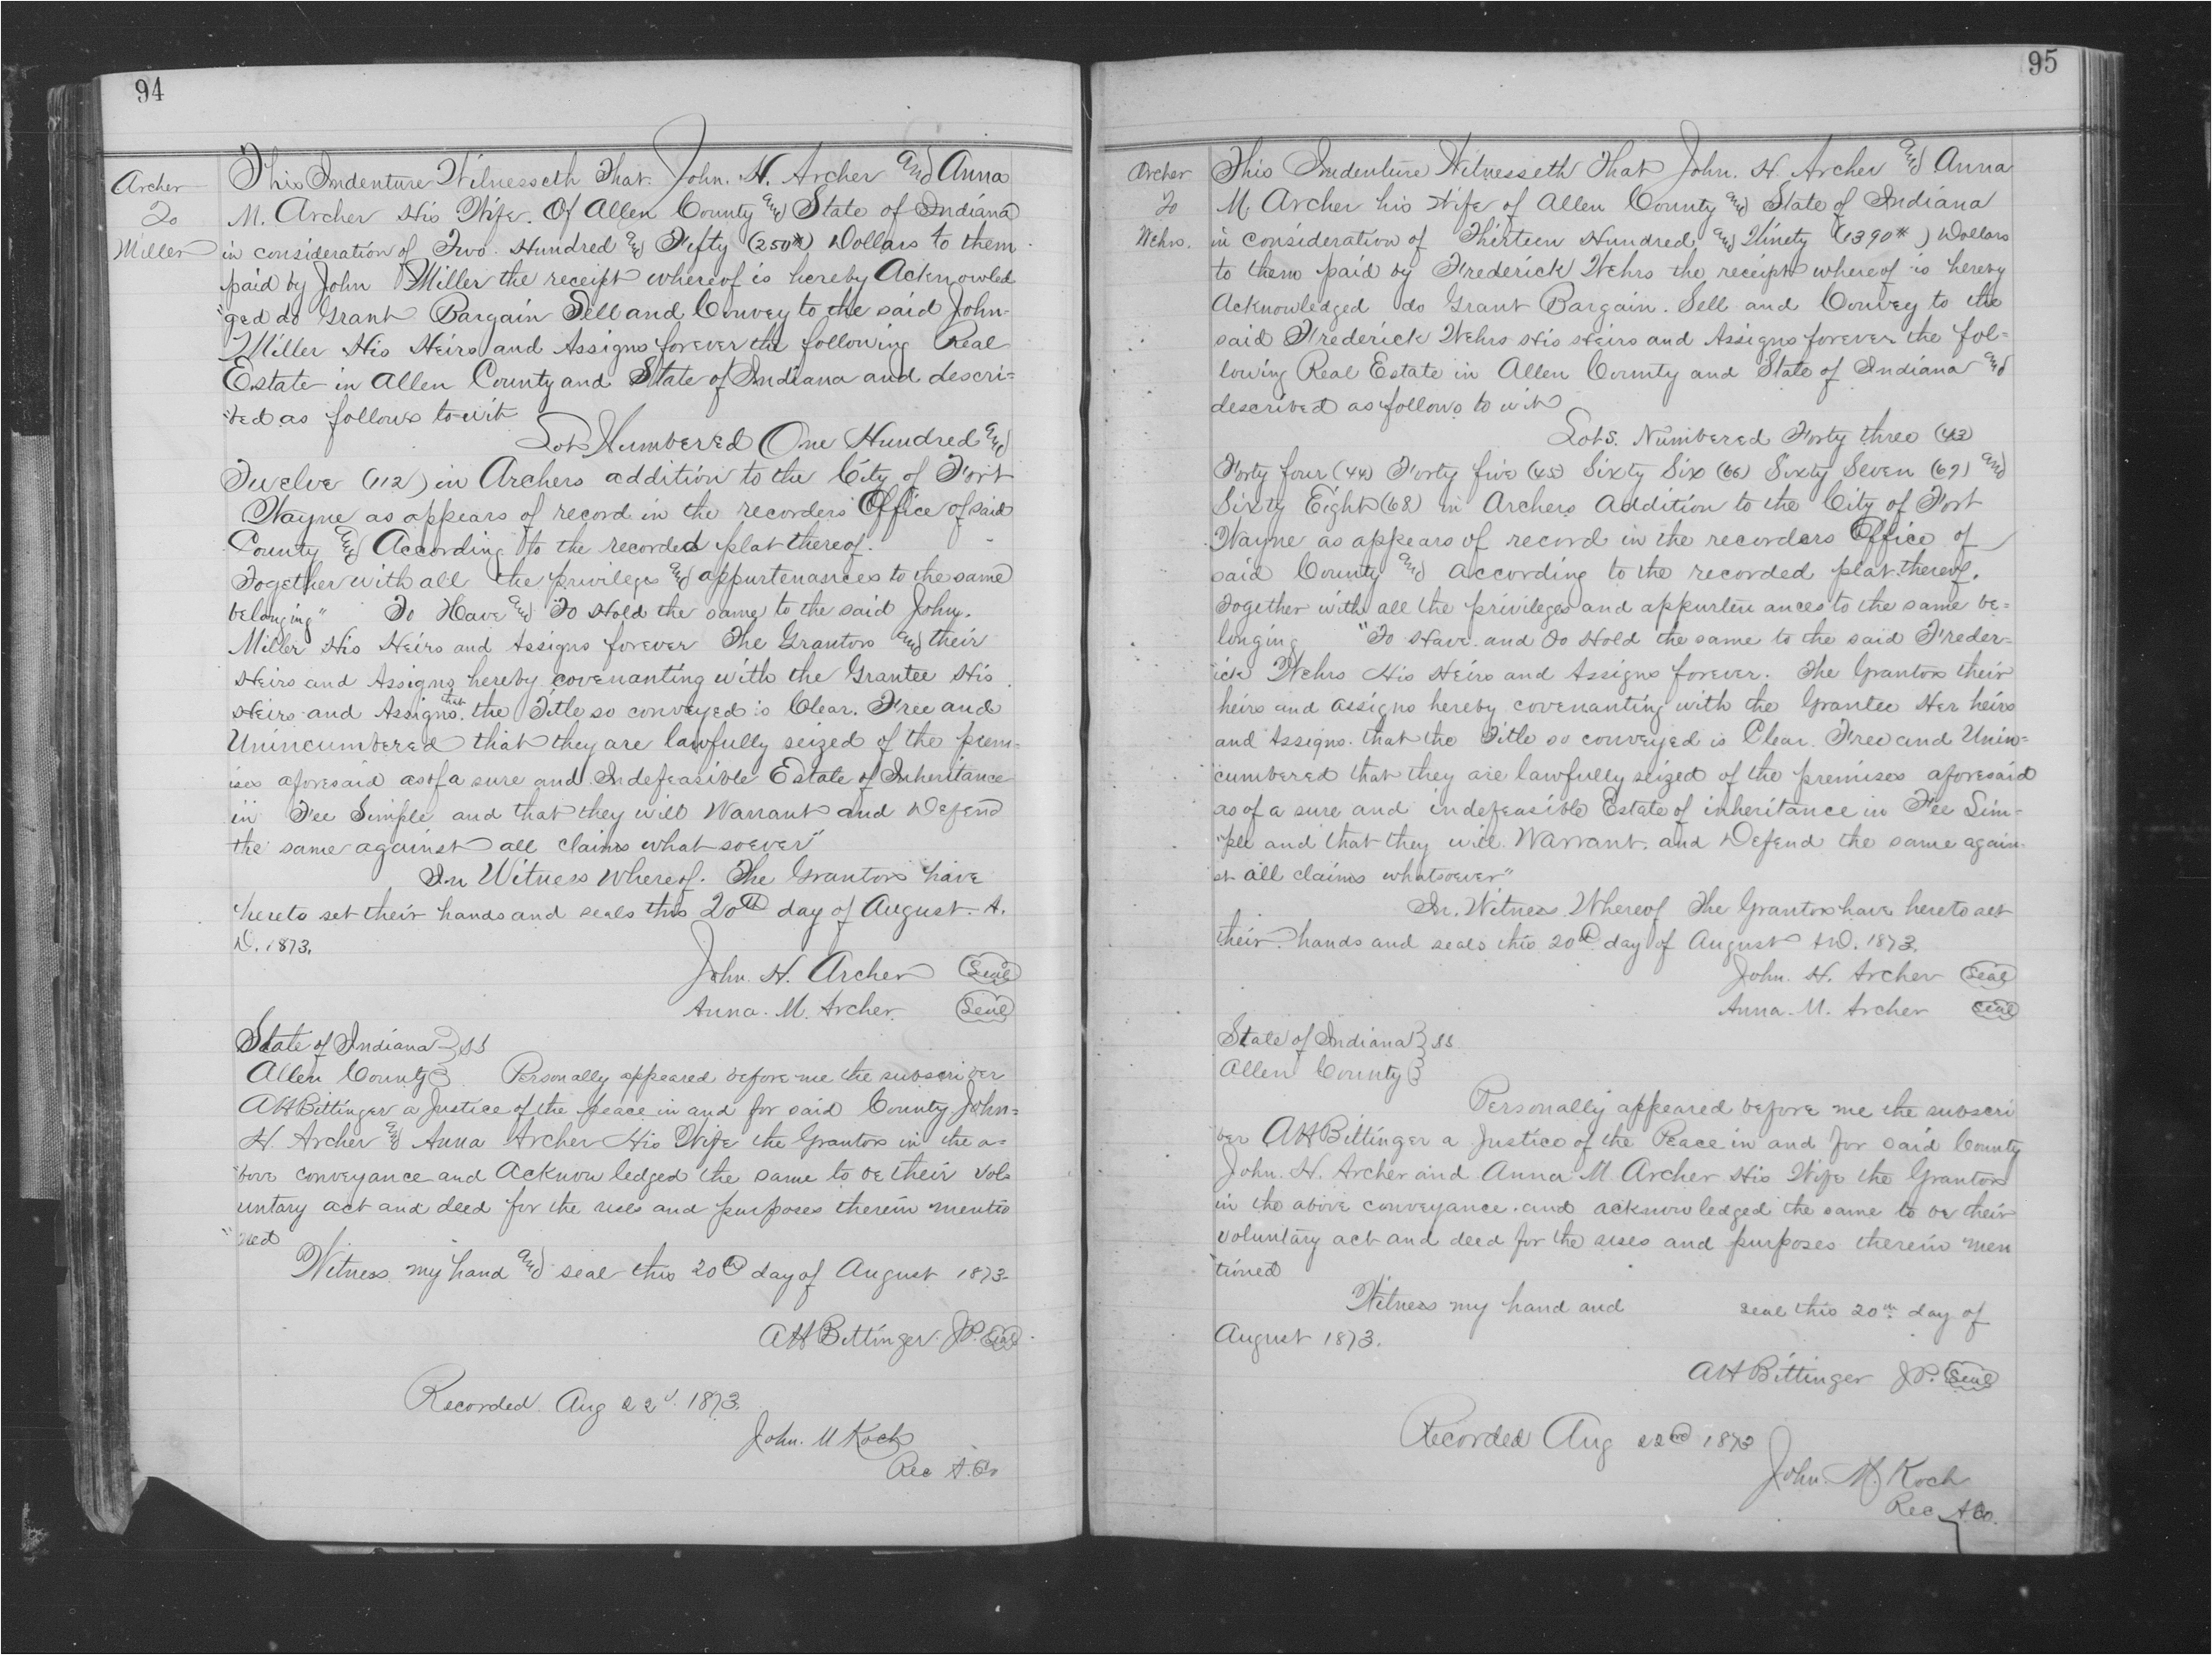 94
Archer
To
Miller
This Indenture Witnesseth That John. H. Archer and Anna
M. Archer His Wife. Of Allen County and State of Indiana
in consideration of Two Hundred and Fifty (250#) Dollars to them
paid by John Miller the receipt whereof is hereby Acknowled
"ged do Grant Bargain Sell and Convey to the said John
Miller His Heirs and Assigns forever the following Real
Estate in Allen County and State of Indiana and descri=
"bed as follows to-wit
Lot Numbered One Hundred and
Twelve (112) in Archers addition to the City of Fort
Wayne as appears of record in the recorders Office of said
County and According to the recorded plat thereof.
Together with all the privileges and appurtenances to the same
belonging" To Have and To Hold the same to the said John.
Miller His Heirs and Assigns forever The Grantors and their
Heirs and Assigns hereby covenanting with the Grantee His
Heirs and Assigns. that the Title so conveyed is Clear. Free and
Unincumbered that they are lawfully seized of the prem=
ises aforesaid as of a sure and Indefeasible Estate of Inheritance
in Fee Simple and that they will Warrant and Defend
the same against all claims what soever"
In Witness Whereof. The Grantors have
hereto set their hands and seals this 20th day of August. A.
D. 1873.
John. H. Archer Seal
Anna. M. Archer. Seal
State of Indiana } SS
Allen County } Personally appeared before me the subscriber
AH Bittinger a Justice of the peace in and for said County John=
H. Archer and Anna Archer His Wife the Grantors in the a=
"bove conveyance and Acknow ledged the same to be their vol=
untary act and deed for the uses and purposes therein mentio
"ned
Witness my hand and seal this 20th day of August 1873.
AH Bittinger. J.P. Seal
Recorded. Aug 22d. 1873.
John. M Koch
Rec A. Co
95
Archer
To
Wehrs.
This Indenture Witnesseth That John. H. Archer and Anna
M. Archer his Wife of Allen County and State of Indiana
in consideration of Thirteen Hundred and Ninety (1390#) Dollars
to them paid by Frederick Wehrs the receipt whereof is hereby
Acknowledged do Grant Bargain. Sell and Convey to the
said Frederick Wehrs His Heirs and Assigns forever the fol=
lowing Real Estate in Allen County and State of Indiana and
described as follows to wit
Lots. Numbered Forty three (43)
Forty four (44) Forty five (45) Sixty Six (66) Sixty Seven (67) and
Sixty Eight (68) in Archers Addition to the City of Fort
Wayne as appears of record in the recorders Office of
said County and according to the recorded plat thereof.
Together with all the privileges and appurten ances to the same be=
longing "To Have and To Hold the same to the said Freder=
"ick Wehrs His Heirs and Assigns forever. The Grantors their
heirs and assigns hereby covenanting with the Grantee Her heirs
and Assigns. that the Title so conveyed is Clear. Free and Unin=
"cumbered that they are lawfully seized of the premises aforesaid
as of a sure and indefeasible Estate of inheritance in Fee Sim=
"ple and that they will Warrant. and Defend the same again=
st all claims whatsoever"
In. Witness Whereof The Grantors have hereto set
their hands and seals this 20th day of August A.D. 1873.
John. H. Archer Seal
Anna. M. Archer Seal
State of Indiana } SS
Allen County }
Personally appeared before me the subscri
ber AH Bittinger a Justice of the Peace in and for said County
John. H. Archer and Anna M Archer His Wife the Grantors
in the above conveyance. and acknow ledged the same to be their
voluntary act and deed for the uses and purposes therein men
"tioned
Witness my hand and seal this 20th day of
August 1873.
AH Bittinger J.P. Seal
Recorded Aug 22nd 1873
John. M. Koch
Rec A.Co.